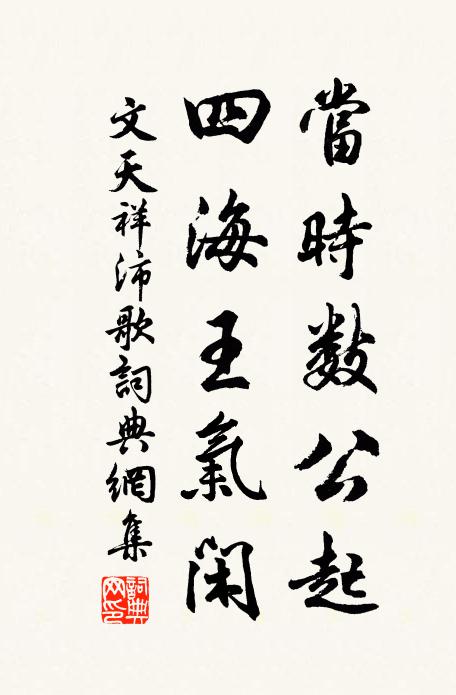 當時數公起
四海王氣閑
文天祥沛歌詞典網集
詞典網印